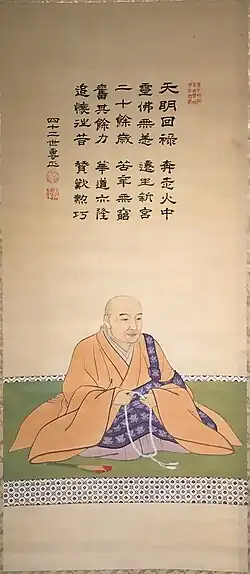 天明回祿 奔走火中
靈佛無恙 遷坐新宮
二十餘歳 苦辛無窮
奮其餘力 華道亦隆
追懷往昔 賛歎勲巧
四十二世專正